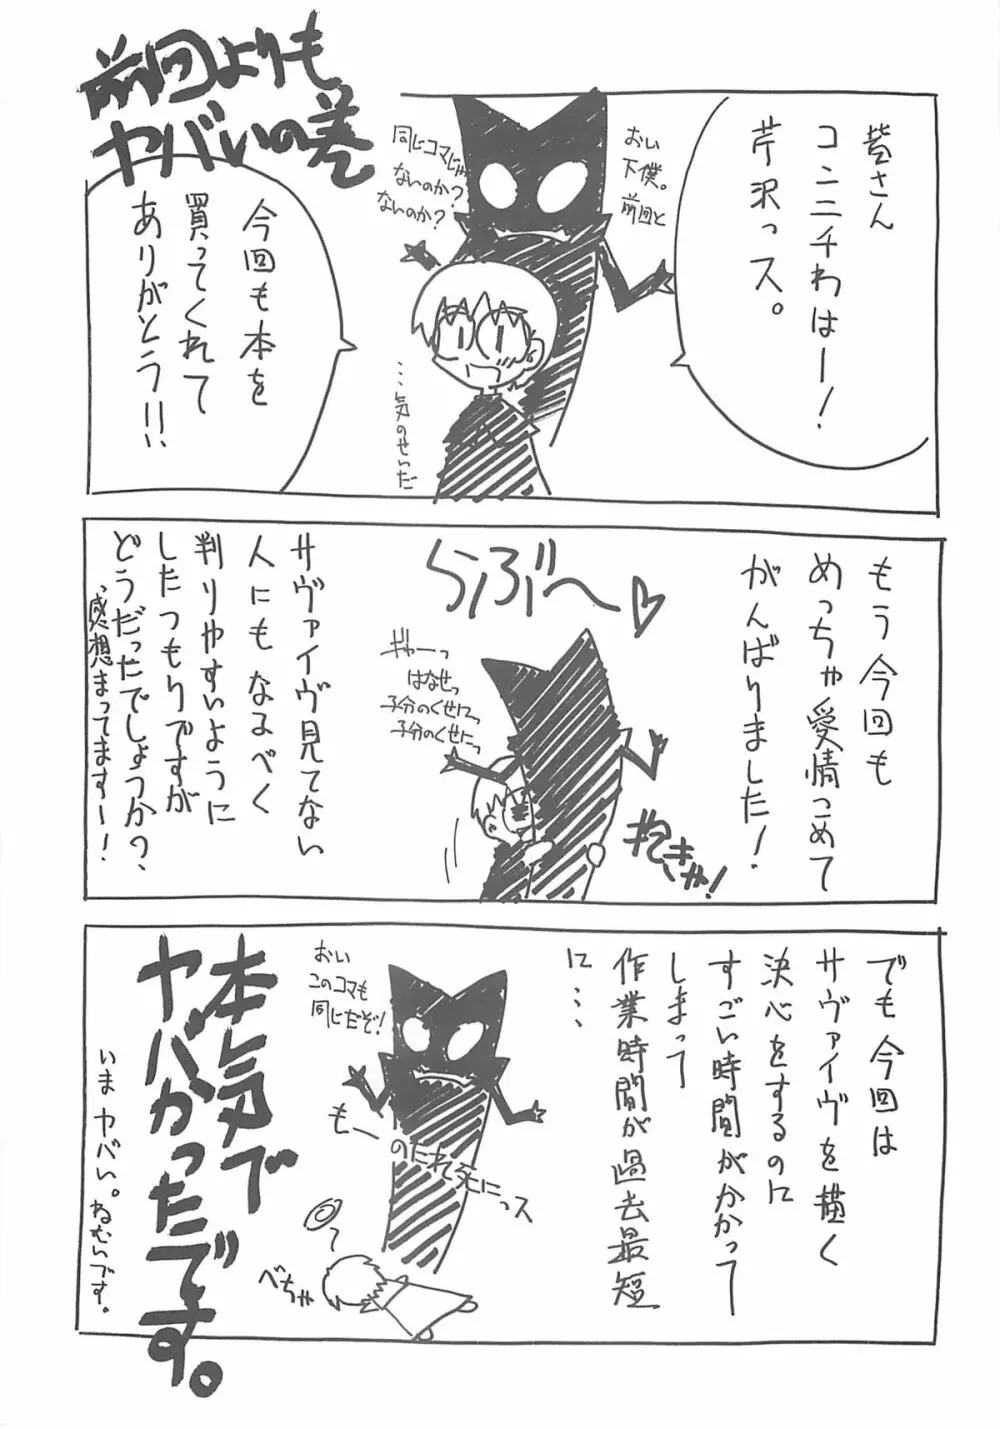 前回よりも
ヤバいの巻
皆さん
コニニチわはー!
芹沢っス。
おい
下僕。
前回と
同じコマじゃ
ないのか?
ないのか?
…気のせいだ
今回も本を
買ってくれて
ありがとう!!
もう今回も
めっちゃ愛情こめて
がんばりました!
らぶ〜♡
ぎゃーっ
はなせっ
子分のくせにっ
子分のくせにっ
むぎゅ!
サヴァイヴ見てない
人にもなるべく
判りやすいように
したつもりですが
どうだったでしょうか?、
感想まってますー!
でも今回は
サヴァイヴを描く
決心をするのに
すごい時間がかかって
しまって
作業時間が過去最短
に…
おい
このコマも
同じだぞ!
もー
のたれ死にっス
べちゃ
本気で
ヤバかったです。
いまヤバい。ねむいです。